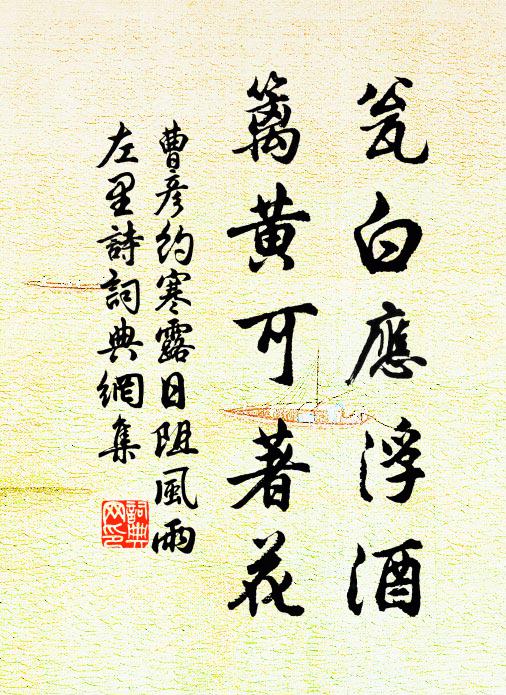 瓮白應浮酒
籬黄可著花
曹彦約寒露日阻風雨
左里詩詞典網集
詞典网印